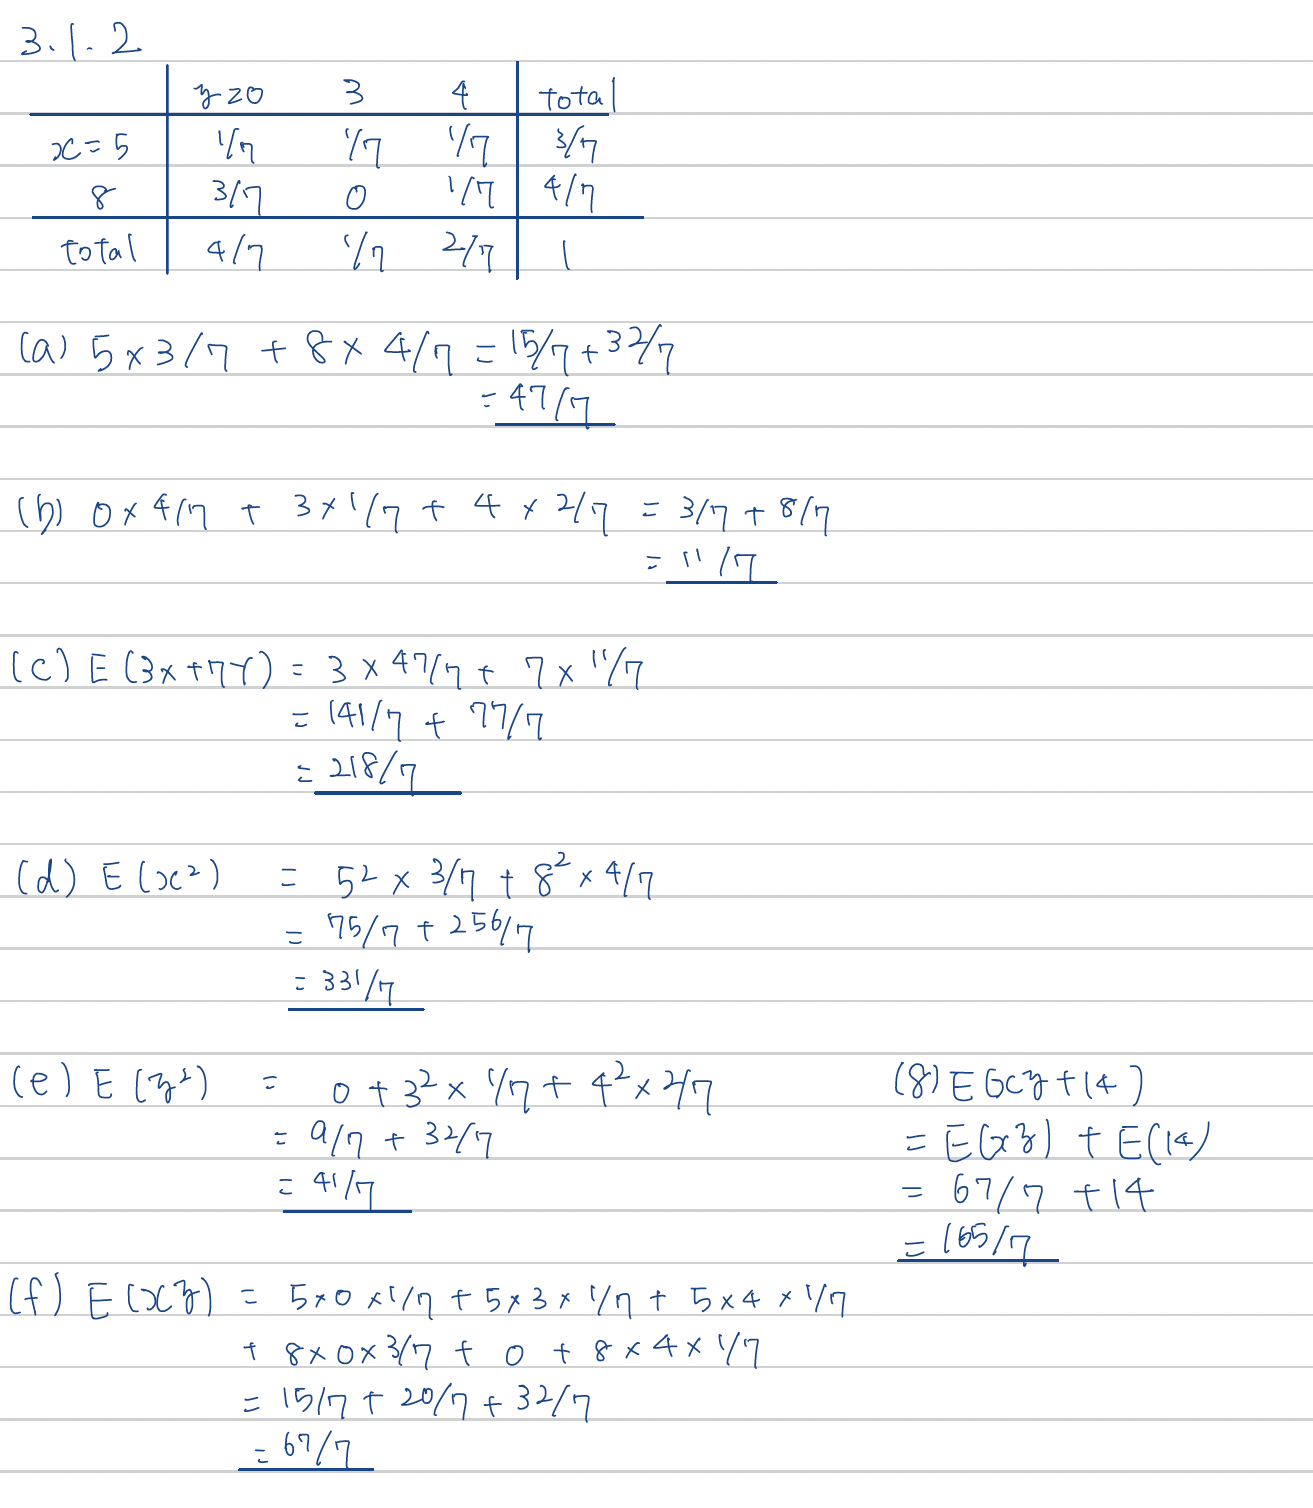 3.1.2
y=0 3 4 total
x=5 1/7 1/7 1/7 3/7
8 3/7 0 1/7 4/7
total 4/7 1/7 2/7 1
(a) 5×3/7 + 8×4/7 = 15/7+32/7
= 47/7
(b) 0×4/7 + 3×1/7 + 4×2/7 = 3/7+8/7
= 11/7
(c) E(3x+7Y) = 3×47/7+ 7×11/7
= 141/7 + 77/7
= 218/7
(d) E(x²) = 5²×3/7+8²×4/7
= 75/7+256/7
= 331/7
(e) E(y²) = 0+3²×1/7+4²×2/7
= 9/7+32/7
= 41/7
(f) E(xy) = 5×0×1/7+5×3×1/7+5×4×1/7
+ 8×0×3/7 + 0 + 8×4×1/7
= 15/7+20/7+32/7
= 67/7
(8) E(xy+14)
= E(xy) + E(14)
= 67/7 +14
= 165/7